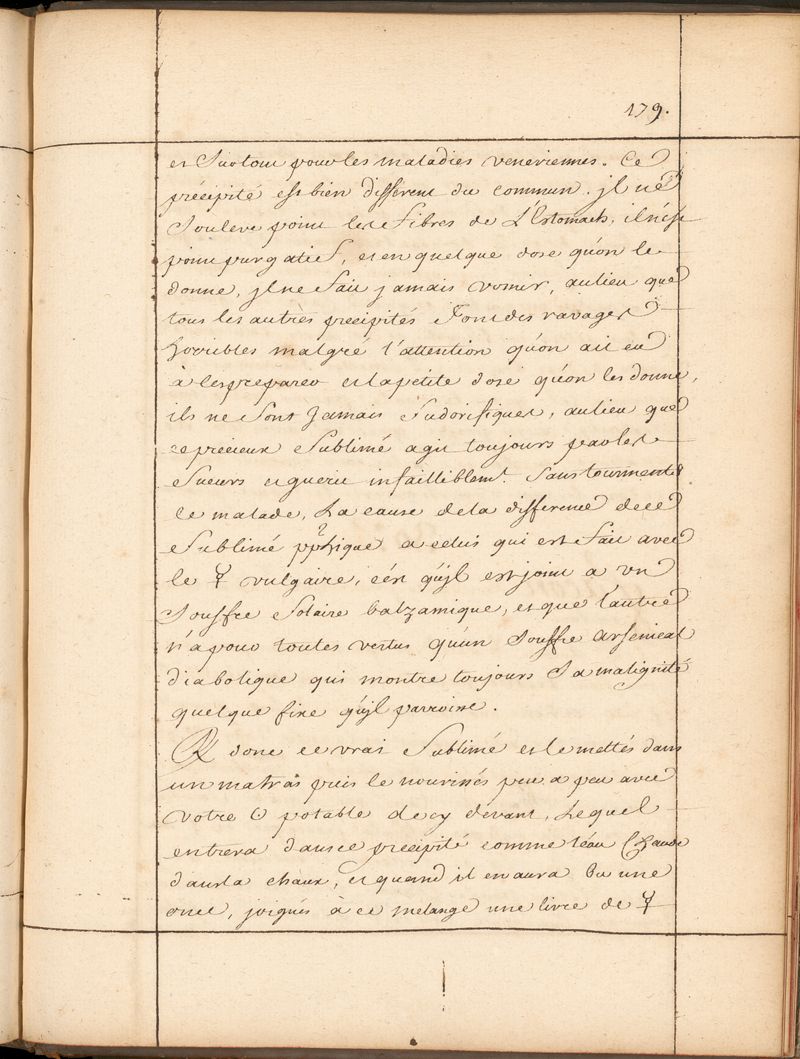 179.
et Surtout pour les maladies veneriennes. Ce
précipité est bien different du commun. jl ne
Souleve point les Fibres de L'Estomach, il n'est
point purgatif, et en quelque dose qu'on le
donne, jl ne Fait jamais vomir, au lieu que
tous les autrès precipités Font des ravages
horribles malgré l'attention qu'on ait eu
à les preparer et la petite dose qu'on les donne,
ils ne Sont Jamais Sudorifiques, au lieu que
ce précieux Sublimé agit toujours par les
Sueurs et guerit infailliblemt. Sans tourmenter
le malade, La cause de la difference de ce
Sublimé pphique a celui qui est Fait avec
le ☿ vulgaire, c'est qu'jl est joint a un
Souffre Solaire balzamique, et que l'autre
n'a pour toutes vertus qu'un Souffre arsenical
diabolique qui montre toujours Sa malignité
quelque fixe qu'jl parroisse.
℞ donc ce vrai Sublimé et le mettés dans
un matras puis le nourissés peu a peu avec
votre ☉ potable de cy devant, Lequel
entrera dans ce precipité comme l'eau Chaude
dans la chaux, et quand il en aura bu une
once, joignés à ce melange une livre de ☿